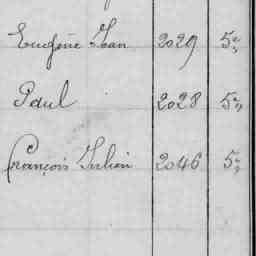 Eugène Jean 2029 5
Paul 2028 5
François Julien 2046 5